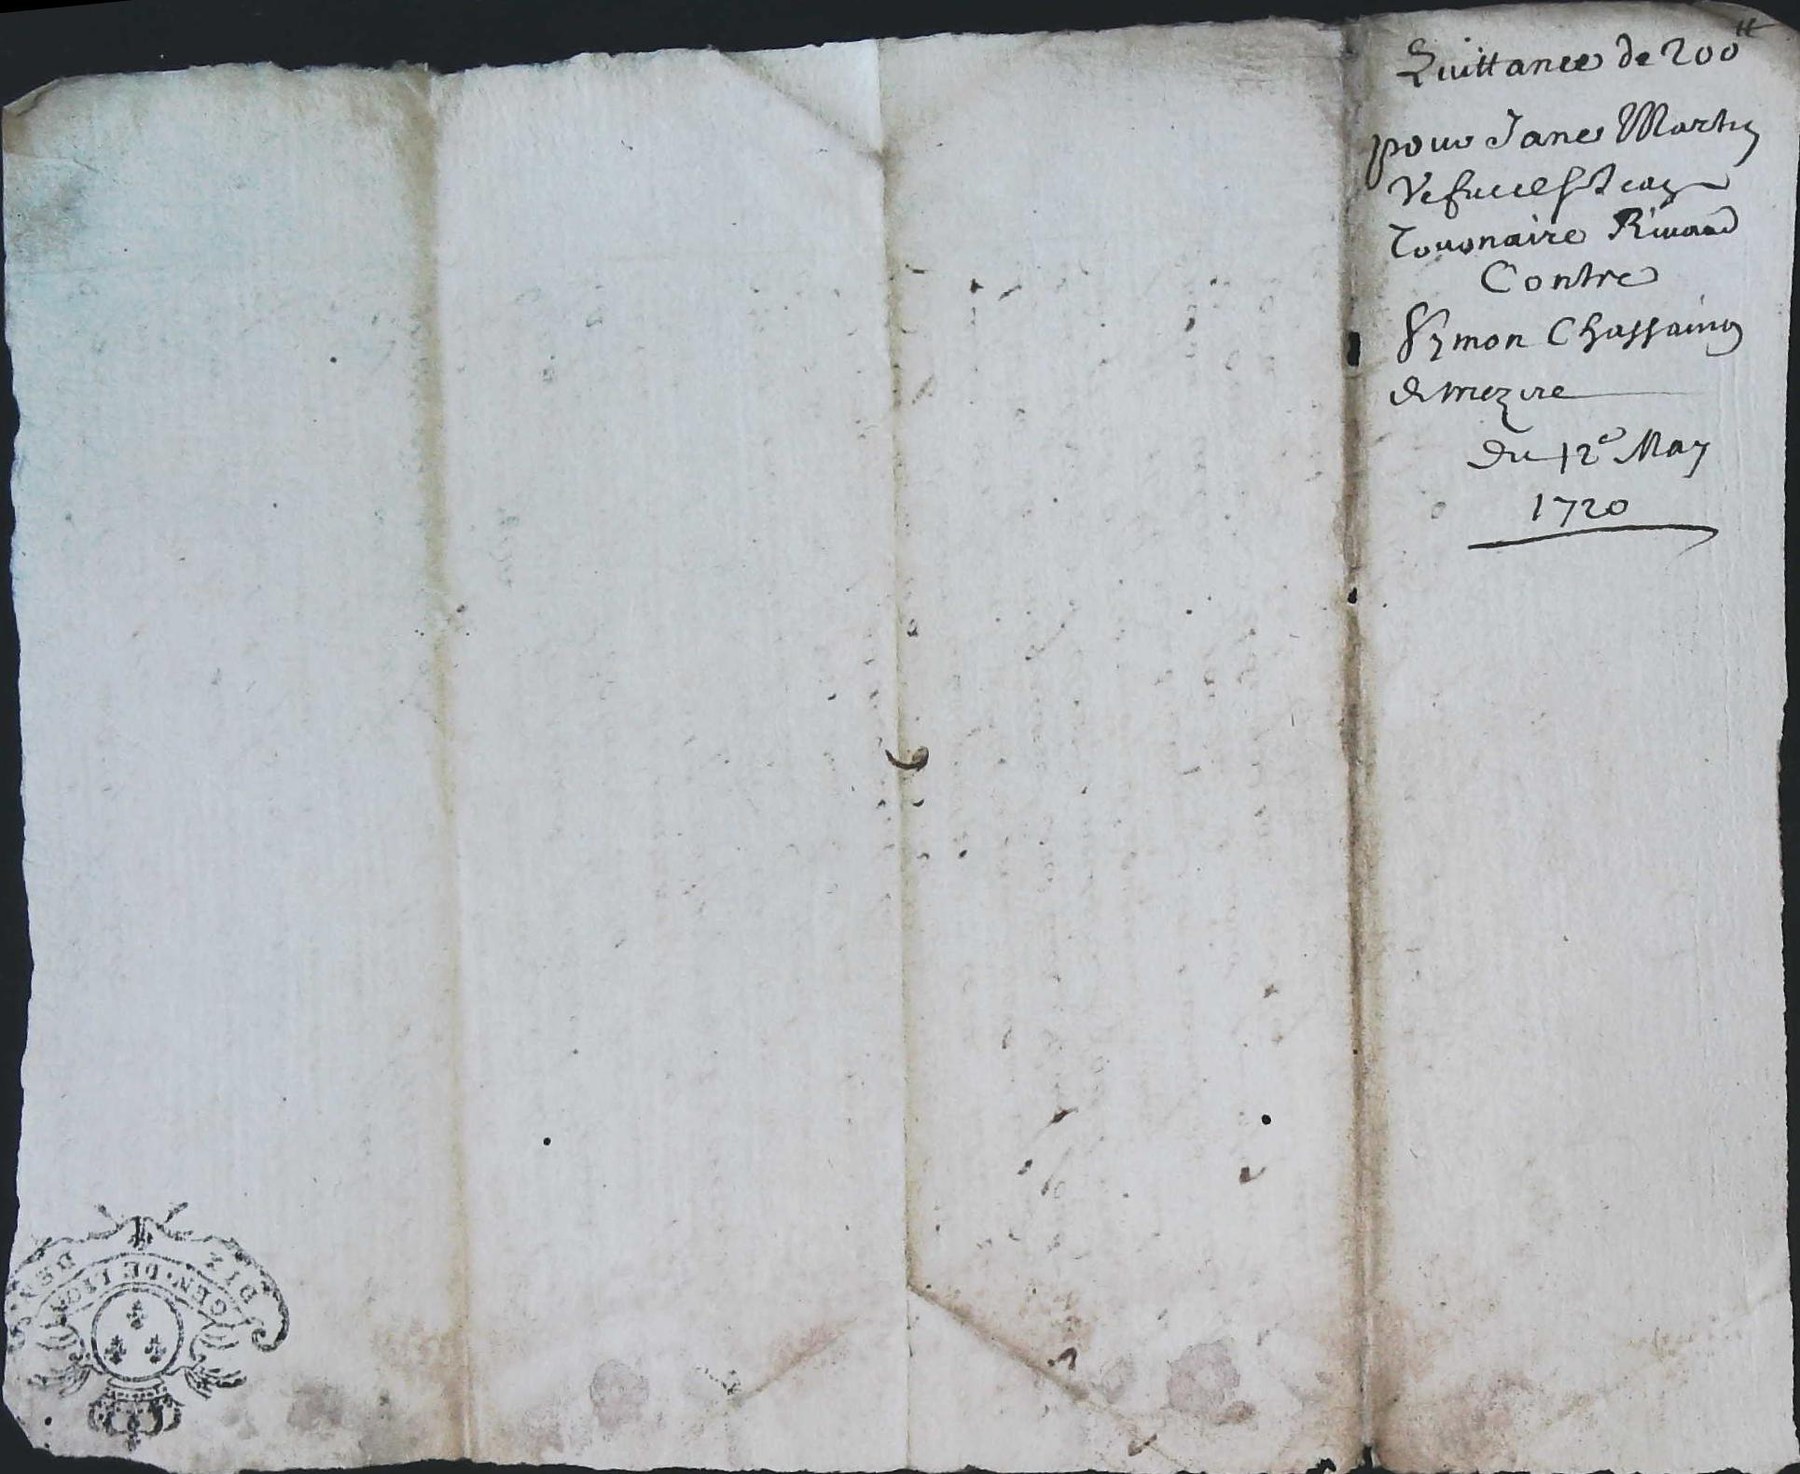 Quittance de 200 ₶
pour Jane Martin
Vefue Jean
Touonaire Riuaud
Contre
Symon Chassaing
de mezere
du 12e May
1720
GEN·DE